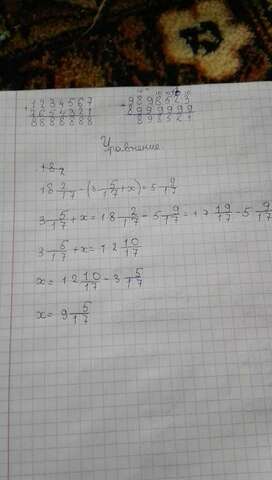 +1234567 -9898523
7654321 8999999
8888888 898521
Уравнение
18 2/17 - (3 5/17 + x) = 5 9/17
3 5/17 + x = 18 2/17 - 5 9/17 = 17 19/17 - 5 9/17
3 5/17 + x = 12 10/17
x = 12 10/17 - 3 5/17
x = 9 5/17